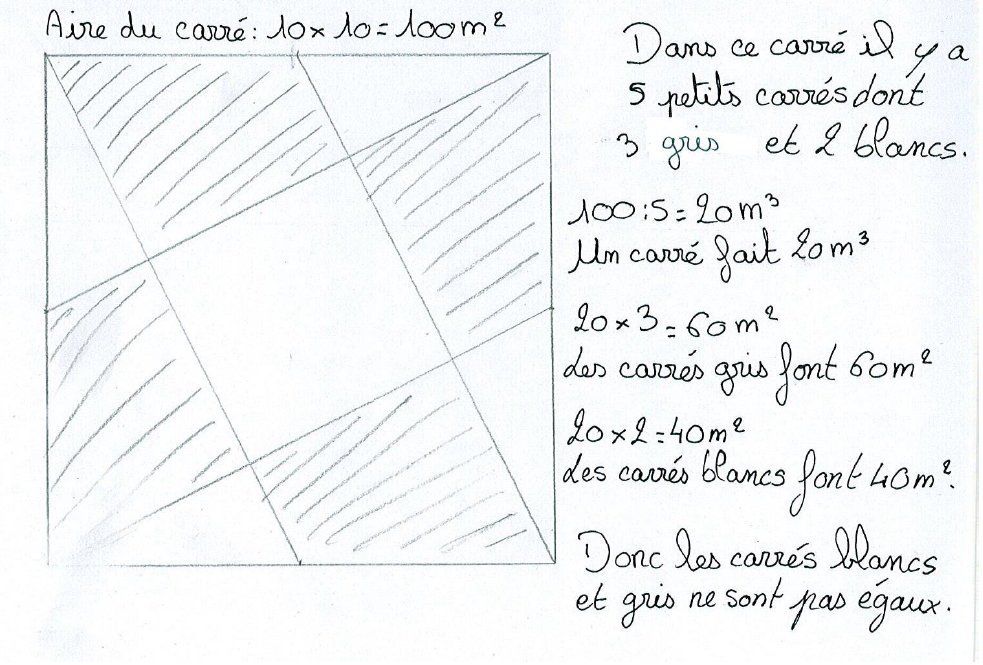 Aire du carré: 10 × 10 = 100m²
Dans ce carré il y a
5 petits carrés dont
3 gris et 2 blancs.
100:5=20m³
Un carré fait 20m³
20×3=60m²
Les carrés gris font 60m²
20×2=40m²
Les carrés blancs font 40m².
Donc les carrés blancs
et gris ne sont pas égaux.